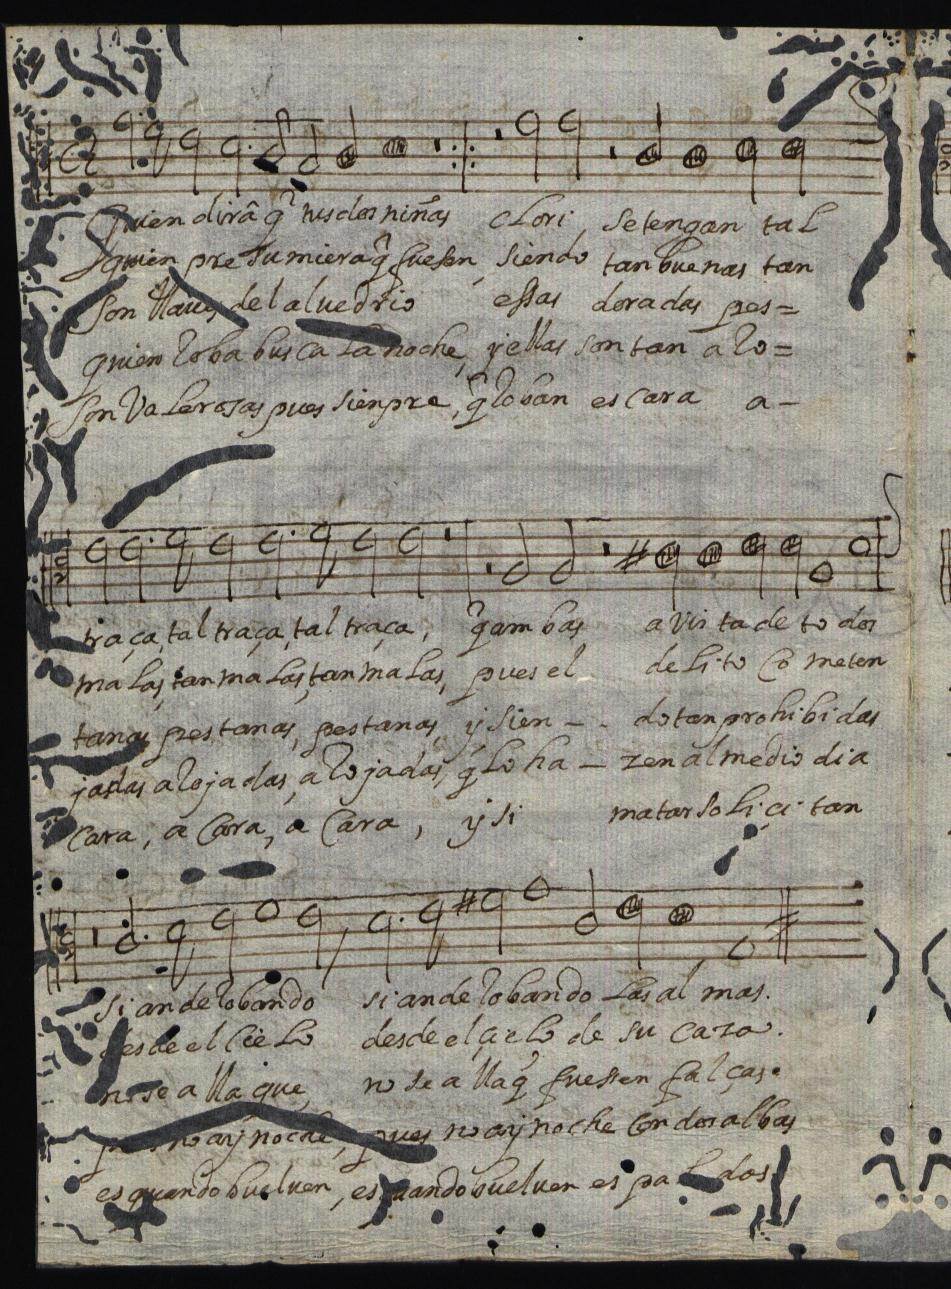 quien dirâ q̃ tus dos niñas cLori, setengan tal
quien presumiera q̃ fuesen, siendo tan buenas tan
son llaues del aluedrio essas doradas pes=
quien roba busca La noche, y ellas son tan a lo=
son VaLerosas pues sienpre, q̃ roban es cara a-
traça, tal traça, tal traça, q̃ ambas a vista de todos
maLas, tan maLas, tan maLas, pues el deLito Cometen
tanas pestanas, pestanas, y sien - - do tan prohibidas
jadas alojadas, alojadas, q̃ Lo ha - zen al medio dia
Cara, a Cara, a Cara, y si matar soLiçitan
si ande robando si ande robando Las almas.
desde el CieLo desde el çieLo de su caza.
no se alla que, no se alla q̃ fuessen falças.
no ay noche, pues no ay noche Con dos albas
es quando bueluen, es quando bueluen espaLdas